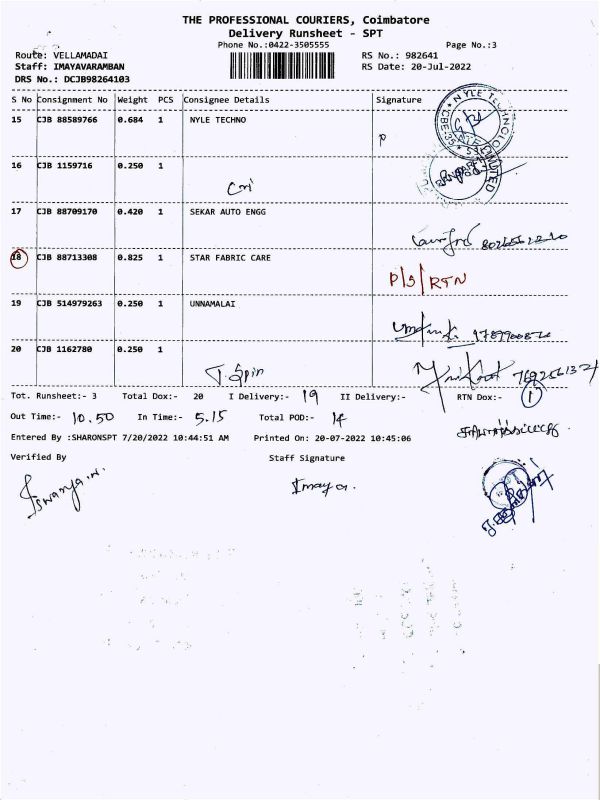 THE PROFESSIONAL COURIERS, Coimbatore
Delivery Runsheet - SPT
Phone No.:0422-3505555 Page No.:3
Route: VELLAMADAI RS No.: 982641
Staff: IMAYAVARAMBAN RS Date: 20-Jul-2022
DRS No.: DCJB98264103
S No Consignment No Weight PCS Consignee Details Signature
15 CJB 88589766 0.684 1 NYLE TECHNO
16 CJB 1159716 0.250 1
17 CJB 88709170 0.420 1 SEKAR AUTO ENGG
18 CJB 88713308 0.825 1 STAR FABRIC CARE P/S/RTN
19 CJB 514979263 0.250 1 UNNAMALAI
20 CJB 1162780 0.250 1
T. Spin
Tot. Runsheet:- 3 Total Dox:- 20 I Delivery:- 19 II Delivery:- RTN Dox:- 1
Out Time:- 10.50 In Time:- 5.15 Total POD:- 14
Entered By :SHARONSPT 7/20/2022 10:44:51 AM Printed On: 20-07-2022 10:45:06
Verified By Staff Signature